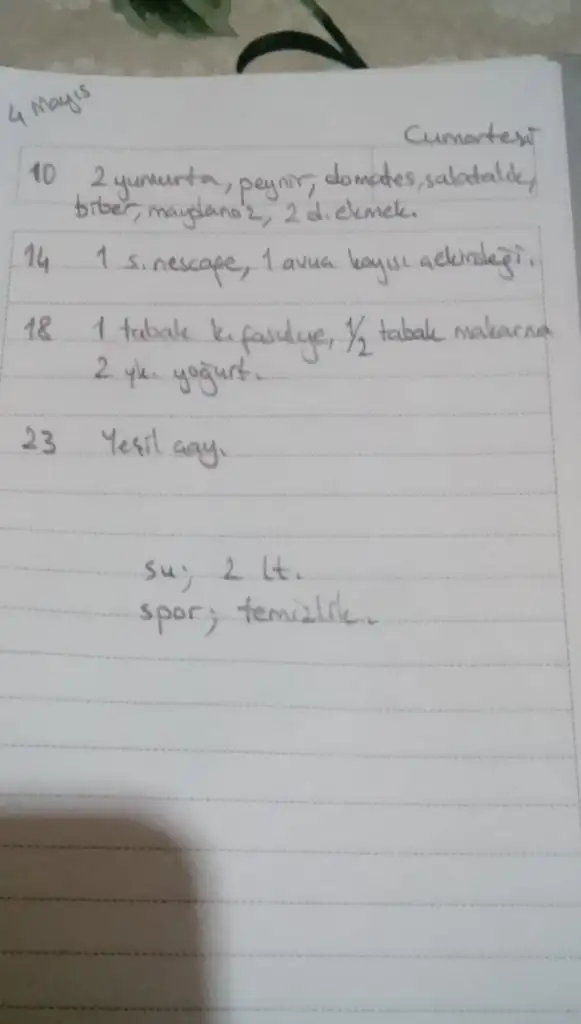 4 Mayıs
Cumartesi
10 2 yumurta, peynir, domates, salatalık,
biber, maydanoz, 2 d. ekmek.
14 1 s. nescafe, 1 avuç kayısı çekirdeği.
18 1 tabak k. fasulye, 1/2 tabak makarna
2 yk. yoğurt.
23 Yeşil çay.
su; 2 lt.
spor; temizlik.